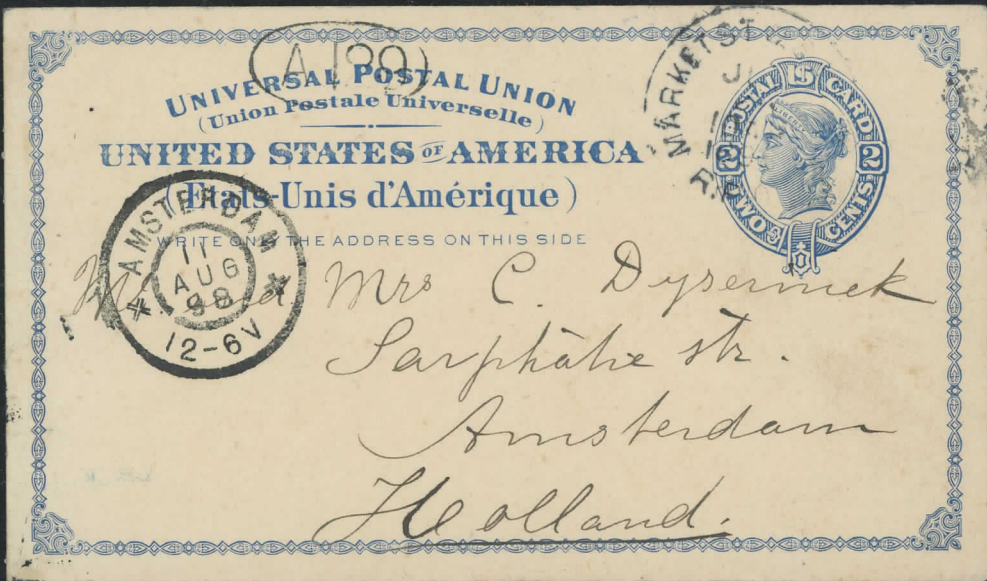 A.199
UNIVERSAL POSTAL UNION
(Union Postale Universelle)
UNITED STATES OF AMERICA
(Etats-Unis d'Amérique)
WRITE ONLY THE ADDRESS ON THIS SIDE
MARKET ST
POSTAL IS CARD
2 2
TWO CENTS
AMSTERDAM
11
AUG
98
12-6V
Mrs C. Dyserinck
Sarphatie str.
Amsterdam
Holland.